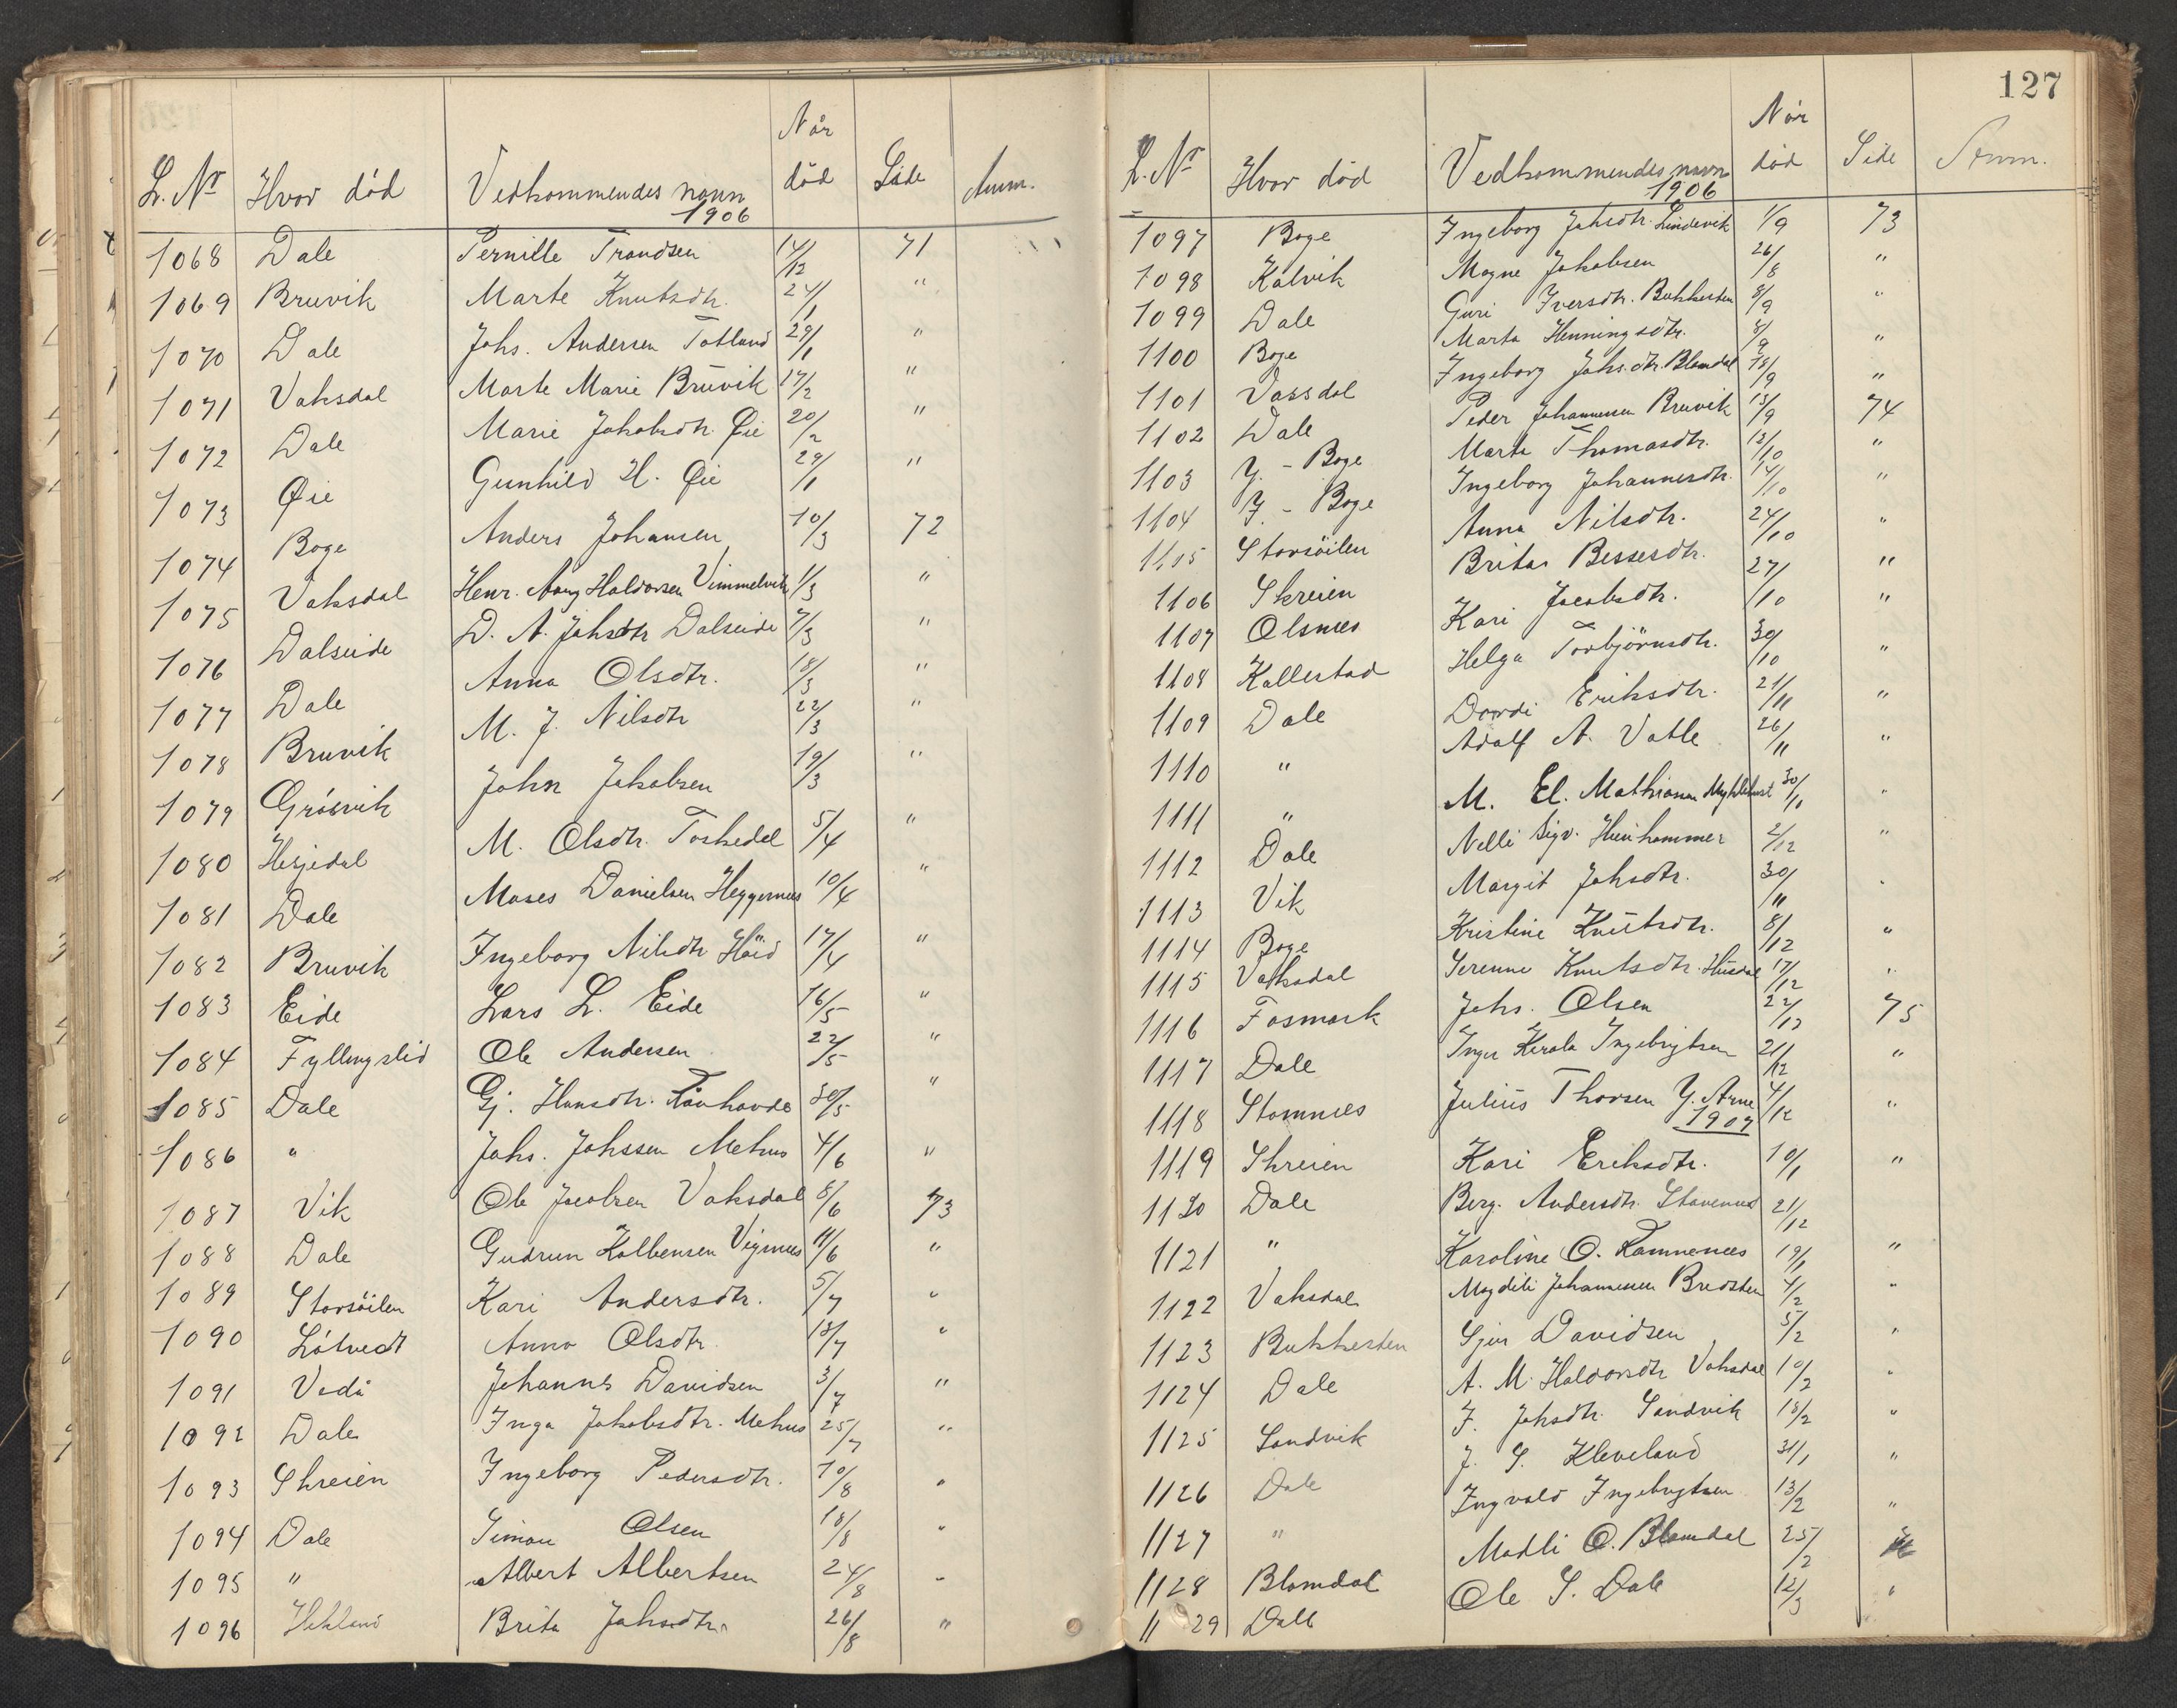 Når
L. Nr Hvor död Vedkommendes navn död Side Anm.
1906
1068 Dale Pernille Trondsen 14/12 71
1069 Bruvik Marte Knutsdtr. 24/1 "
1070 Dale Johs. Andersen Totland 29/1 "
1071 Vaksdal Marte Marie Bruvik 17/2 "
1072 Dale Marie Jakobsdtr. Øie 20/2 "
1073 Øie Gunhild H. Øie 29/1 "
1074 Boge Anders Johansen 10/3 72
1075 Vaksdal Henr. Haldorsen Vimmelvik 1/3 "
1076 Dalseide D. A. Johsdtr Dalseide 7/3 "
1077 Dale Anna Olsdtr. 18/3 "
1078 Bruvik M. J. Nilsdtr 22/3 "
1079 Grósvik John Jakobsen 19/3 "
1080 Hesjedal M. Olsdtr. Toskedal 5/4 "
1081 Dale Moses Danielsen Heggernes 10/4 "
1082 Bruvik Ingeborg Nilsdtr 17/4 "
1083 Eide Lars L. Eide 16/5 "
1084 Fyllingslid Ole Andersen 22/5 "
1085 Dale Gj. Hansdtr. 30/5 "
1086 " Johs. Johssen Mehus 4/6 "
1087 Vik Ole Jacobsen Vaksdal 8/6 73
1088 Dale Gudrun Kolbensen Vignes 11/6 "
1089 Storsöilen Kari Andersdtr. 5/7 "
1090 Lótvedt Anna Olsdtr. 13/7 "
1091 Vedå Johannes Davidsen 3/7 "
1092 Dale Inga Jakobsdtr. Mehus 25/7 "
1093 Skreien Ingeborg Pedersdtr. 10/8 "
1094 Dale Simon Olsen 18/8 "
1095 " Albert Albertsen 24/8 "
1096 Helland Brita Johsdtr. 26/8 "
127
Når
L. Nr Hvor död Vedkommendes navn död Side Anm.
1906
1097 Boge Ingeborg Johsdtr. Lindevik 1/9 73
1098 Kalvik Mogne Jakobsen 26/8 "
1099 Dale Guri Iversdtr. Bukkesten 8/9 "
1100 Boge Marta Henningsdtr. 8/9 "
1101 Vassdal Ingeborg Johs.dtr. Blomdal 18/9 "
1102 Dale Peder Johannessen Bruvik 13/9 74
1103 Y. - Boge Marta Thomasdtr. 12/10 "
1104 Y. - Boge Ingeborg Johannesdtr. 14/10 "
1105 Storsöilen Anna Nilsdtr. 24/10 "
1106 Skreien Brita Bessesdtr. 27/10 "
1107 Olsnes Kari Jacobsdtr. "
1108 Kallestad Helga Torbjörnsdtr. 30/10 "
1109 Dale Dordi Eriksdtr. 21/11 "
1110 " Adolf A. Vatle 26/11 "
1111 " M. El. Myklebust 30/11 "
1112 Dale Nelli Sigv. 2/12 "
1113 Vik Margit Johsdtr. 30/11 "
1114 Boge Kristine Knutsdtr. 8/12 "
1115 Vaksdal Serenne Knutsdtr. Husdal 17/12 "
1116 Fosmark Johs. Olsen 22/12 75
1117 Dale Inga Ingebrigtsen 21/12 "
1118 Stamnes Julius Thorsen Y. Arne 4/12 "
1907
1119 Skreien Kari Eriksdtr. 10/1 "
1120 Dale Berg. Andersdtr. Stavenes 21/12
1121 " Karoline O. 19/1 "
1122 Vaksdal Magdeli Johannessen Bredsten 4/2 "
1123 Bukkesten Davidsen 5/2 "
1124 Dale A. M. Haldorsdtr Vaksdal 10/2 "
1125 Sandvik J. Johsdtr. Sandvik 18/2 "
1126 Dale J. S. Kleveland 31/1 "
1127 " Ingvald Ingebrigtsen 13/2 "
1128 Blomdal Madli O. Blomdal 25/2
1129 Dale Ole S. Dale 12/3 "